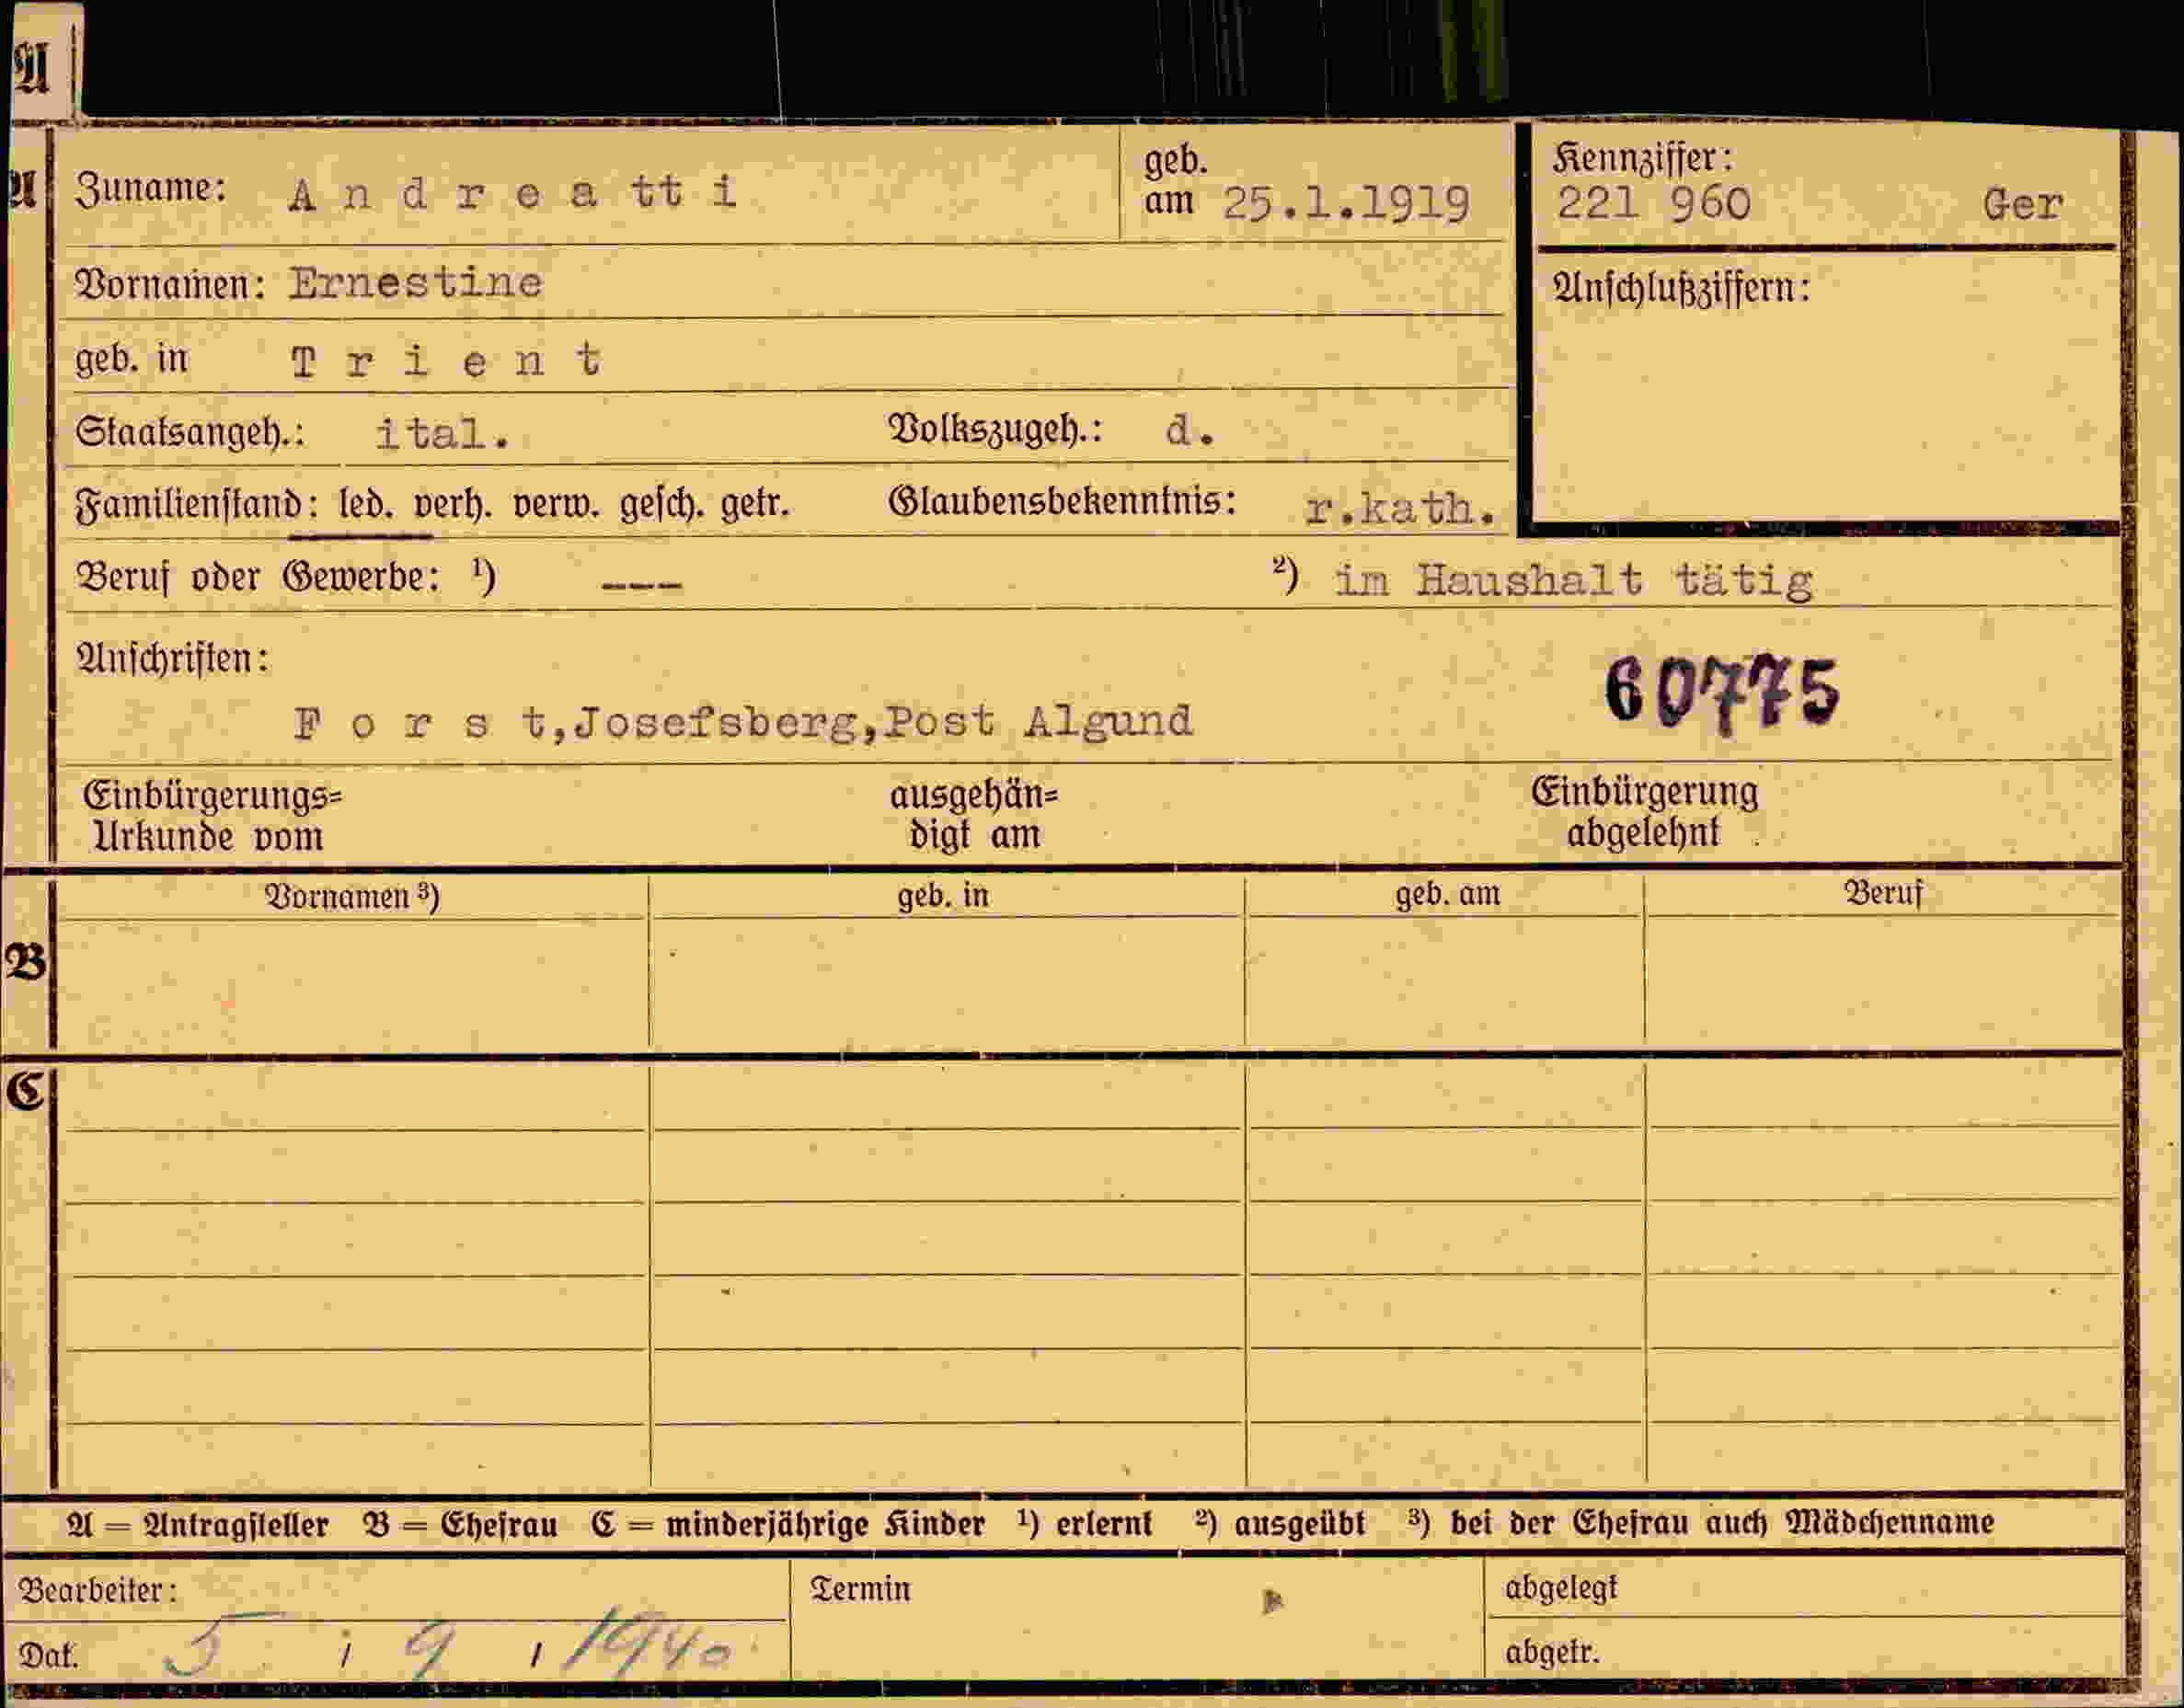 A
A
Zuname: Andreatti
geb. am 25.1.1919
Kennziffer:
221 960 Ger
Vornamen: Ernestine
Anschlußziffern:
geb. in Trient
Staatsangeh.: ital. Volkszugeh.: d.
Familienstand: led. verh. verw. gesch. getr. Glaubensbekenntnis: r.kath.
Beruf oder Gewerbe: ¹) --- ²) im Haushalt tätig
Anschriften:
60775
Forst,Josefsberg,Post Algund
Einbürgerungs=
Urkunde vom
ausgehän=
digt am
Einbürgerung
abgelehnt
Vornamen ³) geb. in geb. am Beruf
B
C
A = Antragsteller B = Ehefrau C = minderjährige Kinder ¹) erlernt ²) ausgeübt ³) bei der Ehefrau auch Mädchenname
Bearbeiter: Termin abgelegt
Dat. 5 / 9 / 1940 abgetr.